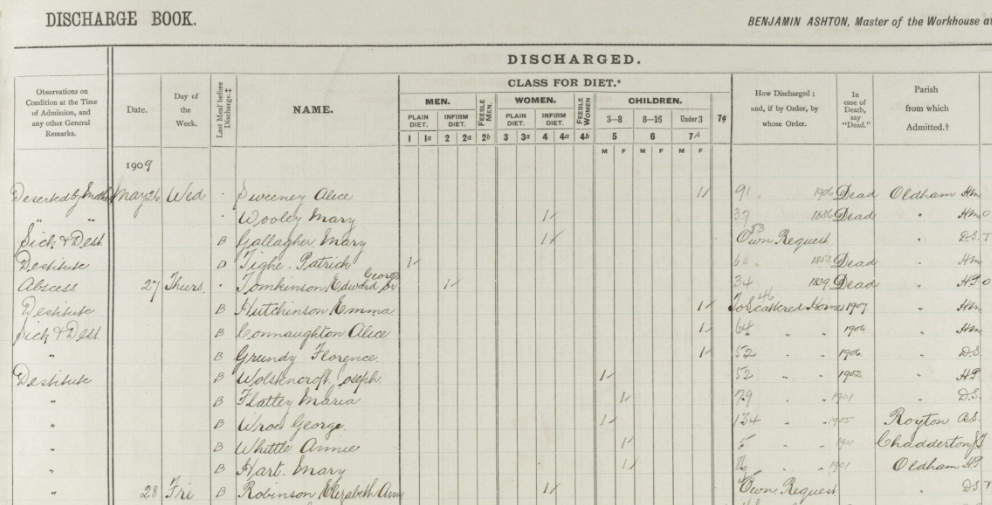 DISCHARGE BOOK.
BENJAMIN ASHTON, Master of the Workhouse at
DISCHARGED.
Observations on Condition at the Time of Admission, and any other General Remarks.
Date.
Day of the Week.
Last Meal before Discharge.‡
NAME.
CLASS FOR DIET.*
MEN.
FEEBLE MEN.
WOMEN.
FEEBLE WOMEN
CHILDREN.
PLAIN DIET. INFIRM DIET. PLAIN DIET. INFIRM DIET. 3—8 8—16 Under 3
1 1a 2 2a 2b 3 3a 4 4a 4b 5 6 7a 7c
M F M F M F
How Discharged; and, if by Order, by whose Order.
In case of Death, say "Dead."
Parish from which Admitted.†
1909
Deserted by May 26 Wed Sweeney Alice 1 91 1906 Dead Oldham Hm
" " Wooley Mary 1 39 1836 Dead " Hm O
Sick & Dest B Gallagher Mary 1 53 Own Request " D.S. T
Destitute D Tighe Patrick 1 Dead " Hm
Abscess 27 Thurs. Tomkinson Edward George 1 34 1829 Dead " HP O
Destitute B Hutchinson Emma 1 46 To Scattered Homes 1907 " Hm
Sick & Dest B Connaughton Alice 1 64 " " 1906 " Hm
" B Grundy Florence. 1 52 " " 1906 " D.S.
Destitute B Wolstencroft Joseph 1 52 " " 1902 " HP
" B Flattey Maria 1 79 " " 1901 " D.S.
" B Wroe George. 1 134 " " 1905 Royton A.S.
" B Whittle Annie 1 5 " " 1901 Chadderton
" B Hart. Mary 1 " " 1901 Oldham HP
" 28 Fri B Robinson Elizabeth Ann 1 Own Request " DS T